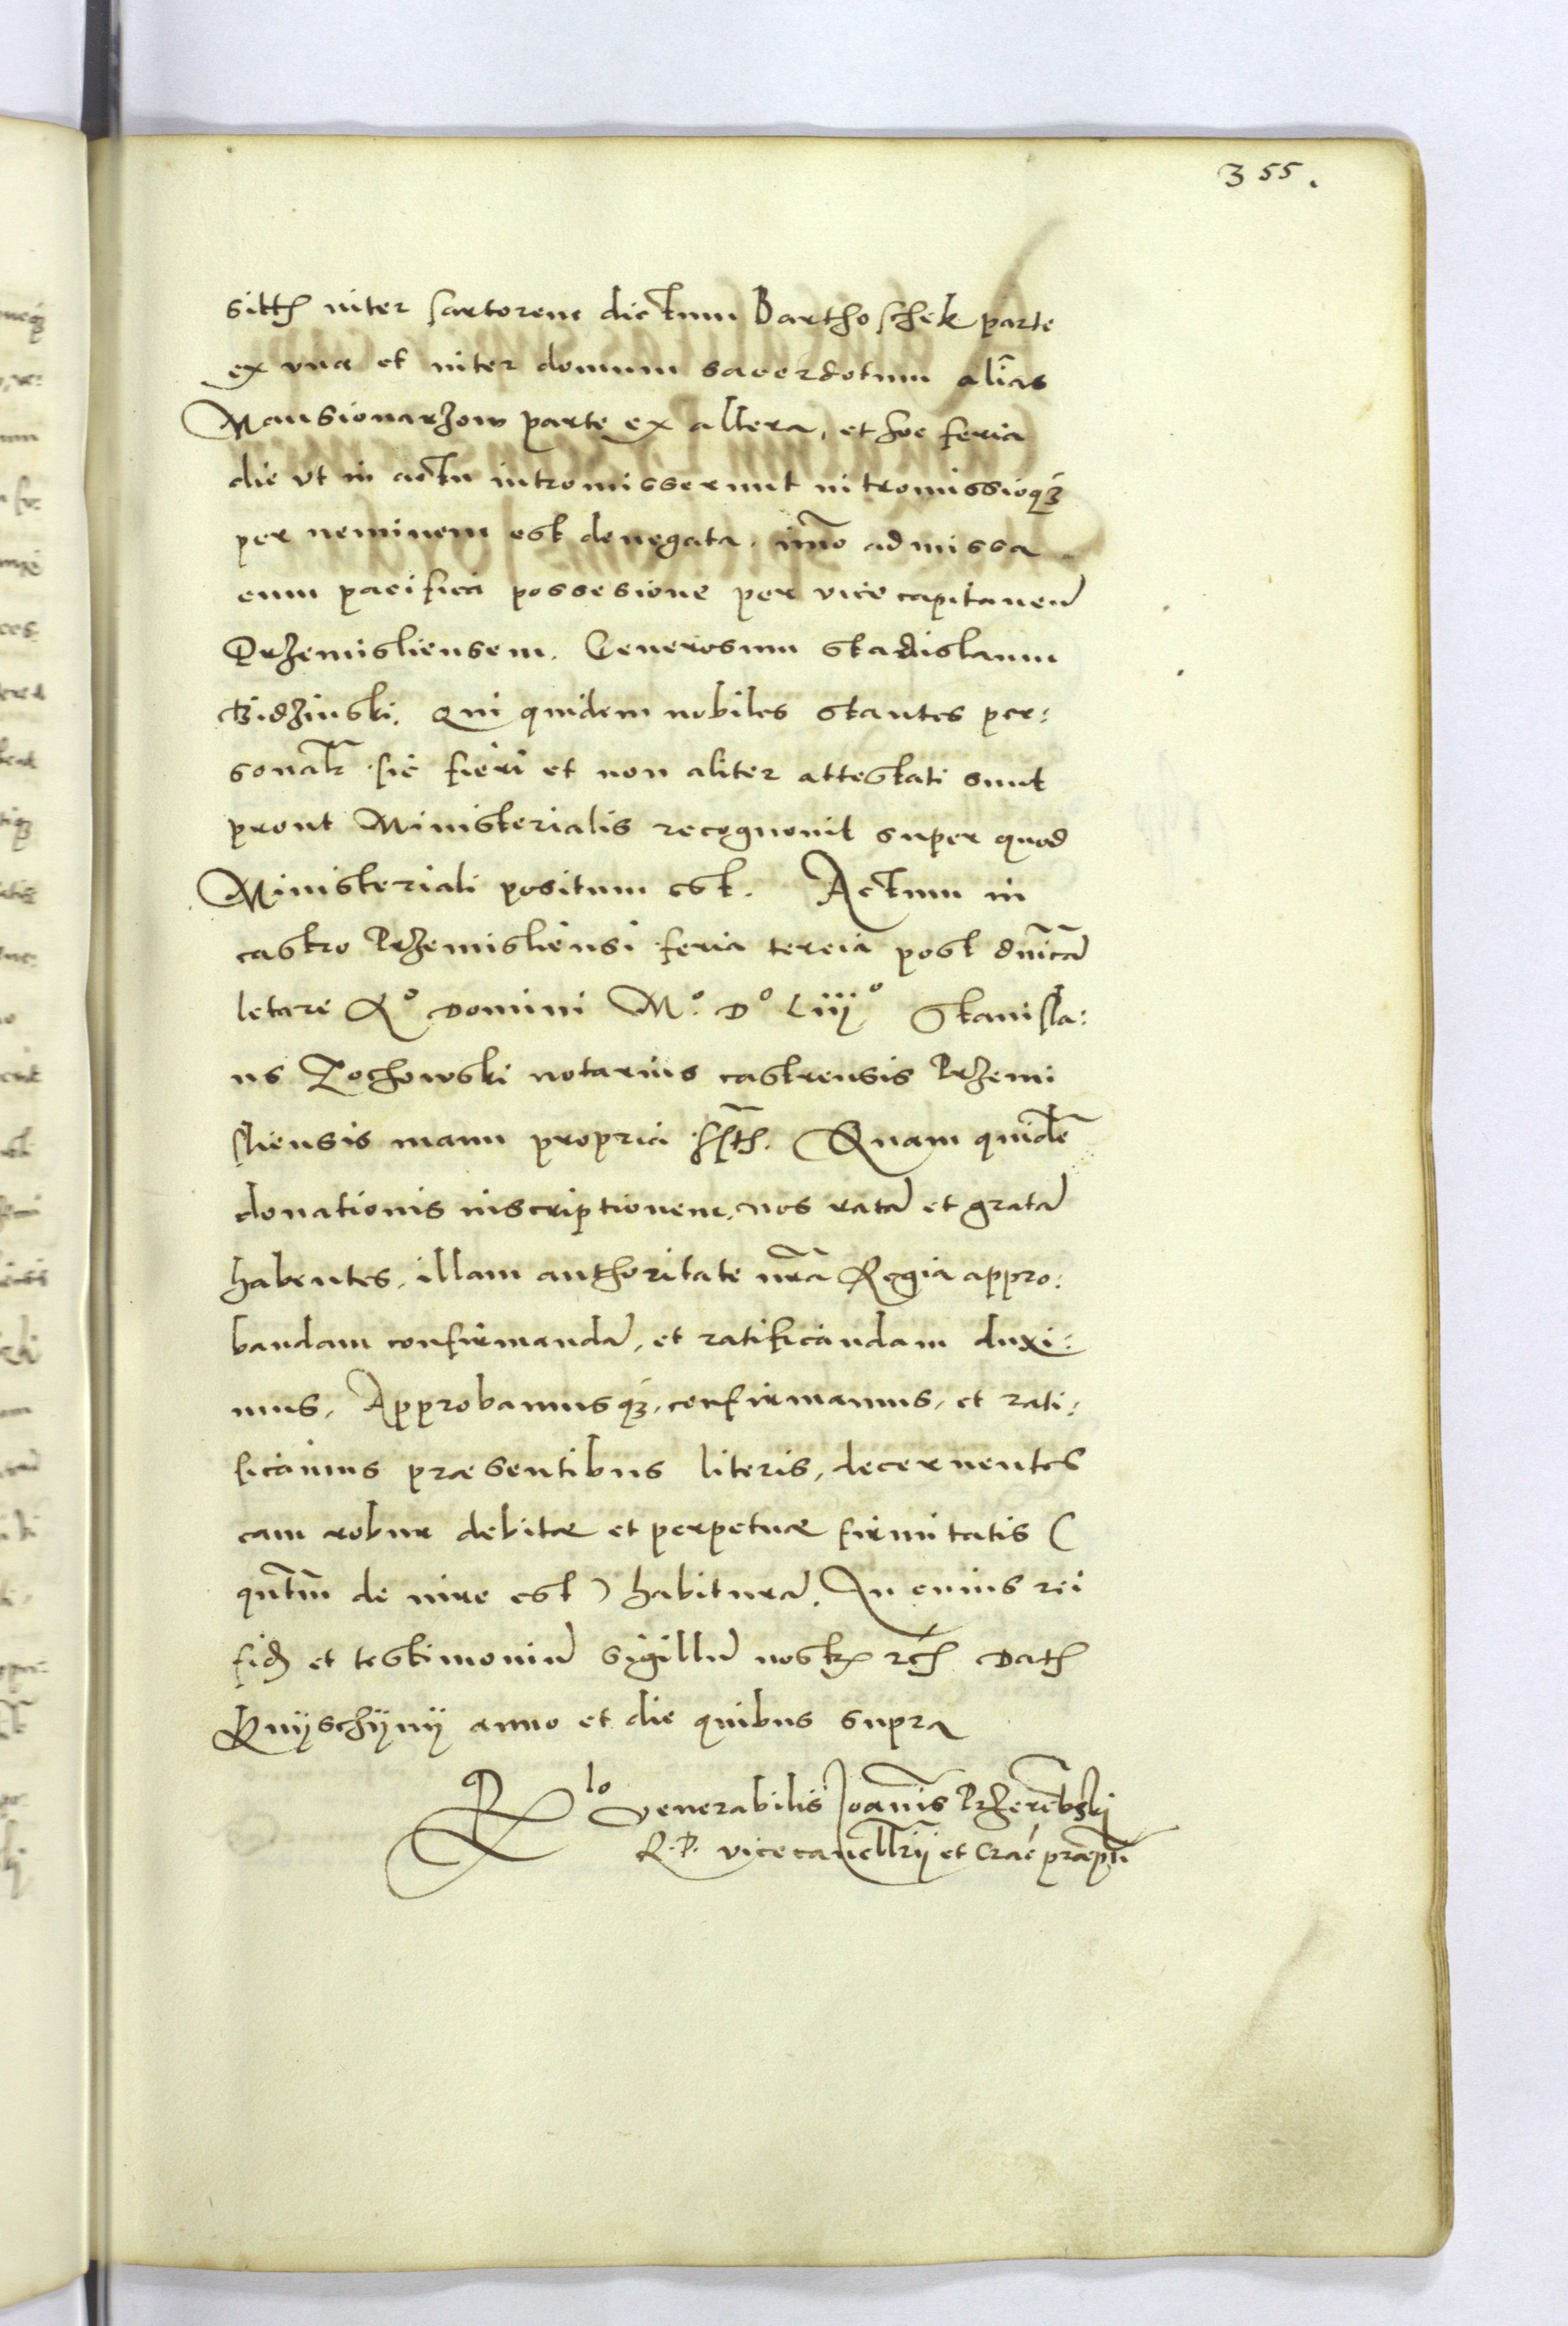 355.
sitth inter sartorem dictum Barthoschek parte
ex vna et inter domum sacerdotum alias
Mansionarzow parte ex altera, et hoc feria
die vt in actu intromisserunt intromissioq3
per neminem est denegata, imo admissa
cum pacifica possesione per vice capitaneu
Przemisliensem. Generosum Stadislaum
qui quidem nobiles stantes per:
sonalr sic fieri et non aliter attestati sunt
prout Ministerialis recognouit super quod
Ministeriali positum est. Actum in
castro Przemisliensi feria tercia post dnica
letare Ao Domini Mo. Do Liiio Stanisla:
us Zochowski notarius castrensis Przemi
sliensis manu propria sst. Quam quide
donationis inscriptionem, nos rata et grata
habentes, illam authoritate nra Regia appro:
bandam confirmanda, et ratificandam duxi:
mus, Approbamusq3, confirmamus, et rati:
ficamus præsentibus literis, decernentes
eam robur debitæ et perpetuæ firmitatis (
quntm de iure est) habitura. In cuius rei
fid et testimoniu sigillu nostr Dat
Knyschÿnÿ anno et die quibus supra
Rlo venerabilis Joannis Przerebski
R. P. vicecancllrij et Crac præpti